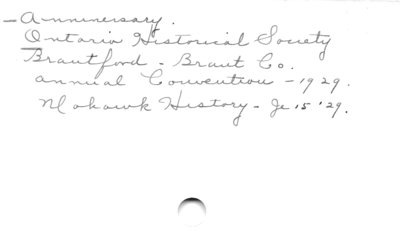 — Anninersary.
Ontario Historical Society
Brantford - Brant Co.
annual Convention - 1929.
Mohawk History - Je 15 '29.